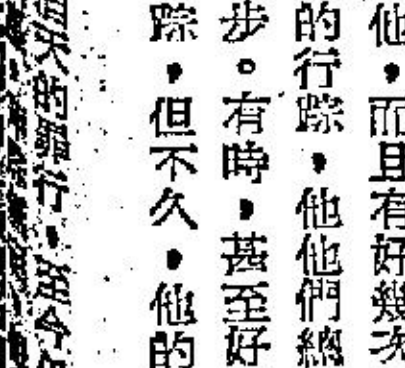 他，而且有好幾次
的行踪，他他們總
步。有時，甚至好
踪，但不久，他的
天的罪行，至今